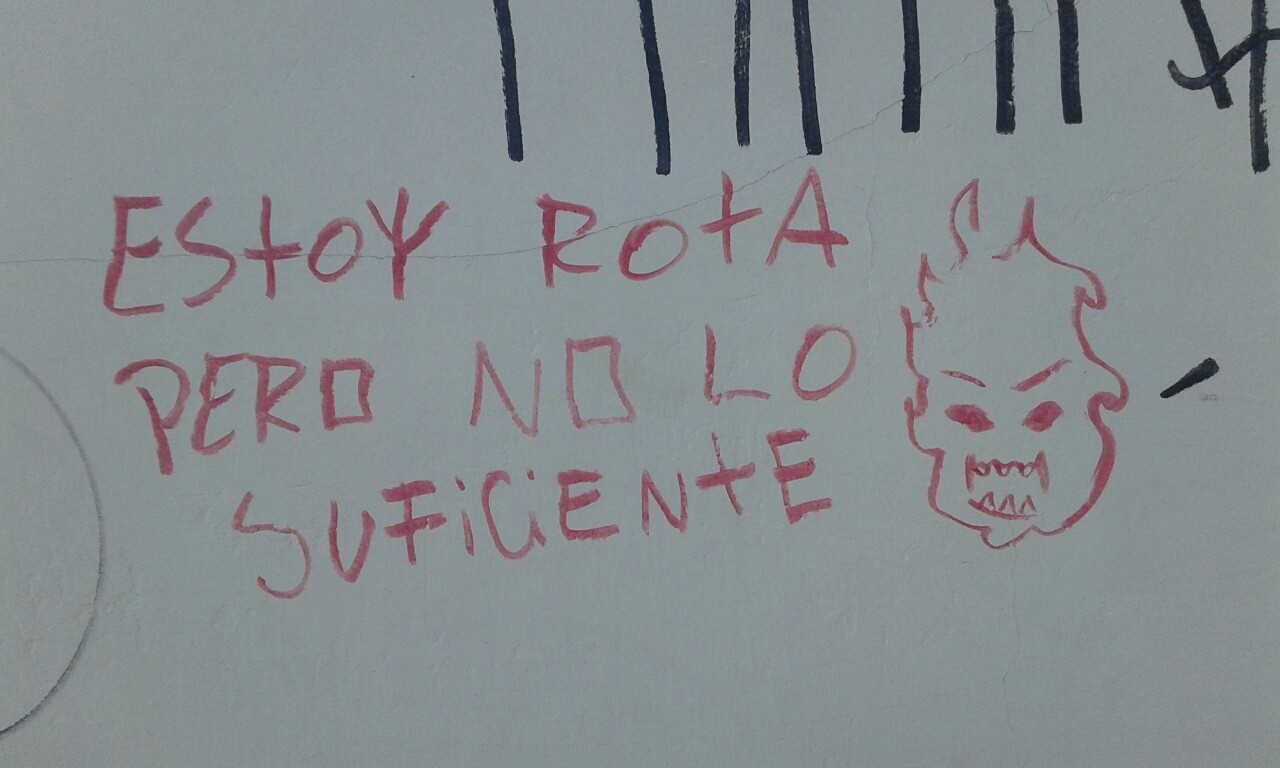 EStoy RotA
PERO NO LO
SUFiCiENtE